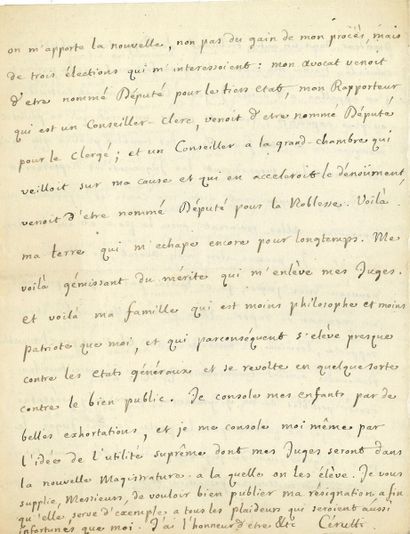 on m'apporte la nouvelle, non pas du gain de mon procès, mais
de trois élections qui m'interessoient : mon avocat venoit
d'etre nommé Député pour le tiers etat, mon Rapporteur
qui est un Conseiller-Clerc, venoit d'etre nommé Député
pour le Clergé ; et un Conseiller a la grand-chambre qui
veilloit sur ma cause et qui en acceleroit le dénoûment,
venoit d'etre nommé Député pour la Noblesse. Voilà
ma terre qui m'echape encore pour longtemps. Me
voilà gémissant du mérite qui m'enlève mes Juges.
et voilà ma famille qui est moins philosophe et moins
patriote que moi, et qui parconséquent s'elève presque
contre les etats généraux et se revolte en quelque sorte
contre le bien public. Je console mes enfants par de
belles exhortations, et je me console moi même par
l'idée de l'utilité suprême dont mes Juges seront dans
la nouvelle Magistrature a la quelle on les élève. Je vous
supplie, Messieurs, de vouloir bien publier ma résignation afin
qu'elle serve d'exemple a tous les plaideurs qui seroient aussi
infortunés que moi. J'ai l'honneur d'etre &c Cérutti.